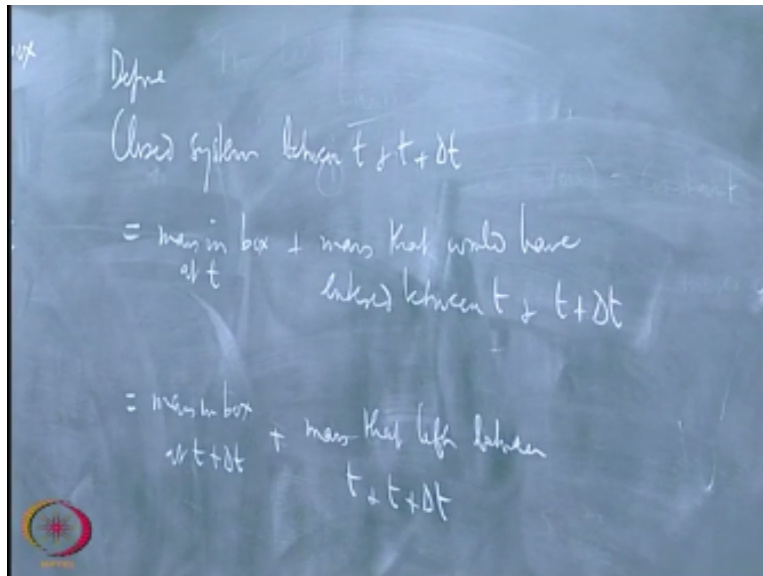 Define
Closed system between t & t + Δt
= mass in box + mass that would have
at t
entered between t & t + Δt
= mass in box
at t + Δt + mass that left between
t & t + Δt
NPTEL